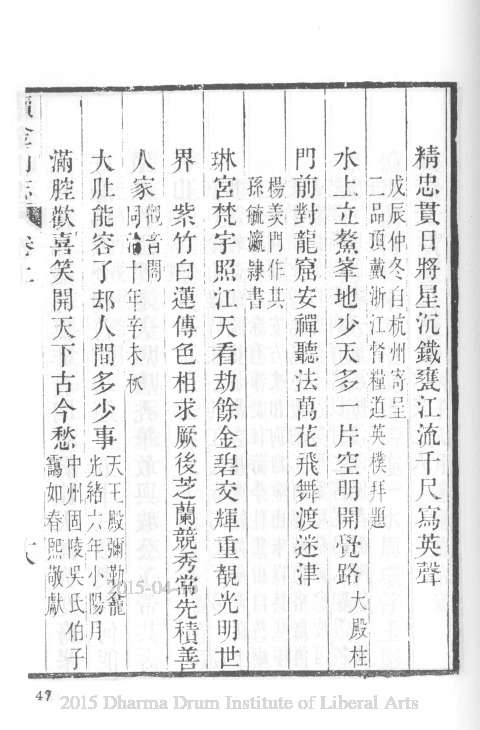 精忠貫日將星沉鐵甕江流千尺寫英聲
戊辰仲冬自杭州寄呈
二品頂戴浙江督糧道英樸拜題
水上立鰲峯地少天多一片空明開覺路大殿柱
門前對龍窟安禪聽法萬花飛舞渡迷津
楊美門作其
孫毓瀛隸書
琳宮梵宇照江天看劫餘金碧交輝重觀光明世
界 紫竹白蓮傳色相求厥後芝蘭競秀常先積善
人家
觀音閣
同治十年辛未秋
大肚能容了却人間多少事
天王殿彌勒龕
光緒六年小陽月
滿腔歡喜笑開天下古今愁
中州固陵吳氏伯子
靄如春熙敬獻
續金山志 卷二
十八
2015-04
49
2015 Dharma Drum Institute of Liberal Arts